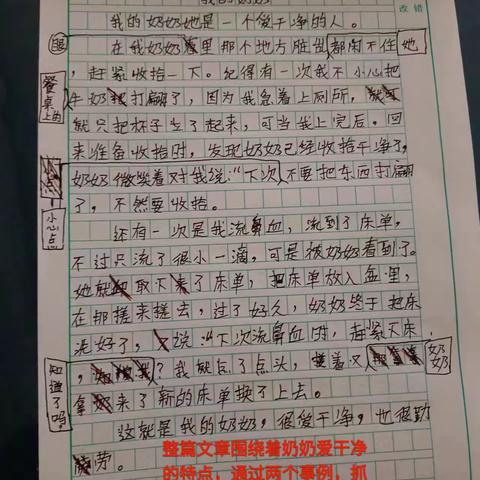 我的奶奶
改错
我的奶奶她是一个爱干净的人。
在我奶奶眼里那个地方脏乱都闲不住她
，赶紧收拾一下。纪得有一次我不小心把
餐桌上的
牛奶打翻了，因为我急着上厕所，
就只把杯子立了起来，可当我上完后。回
来准备收拾时，发现奶奶已经收拾干净了，
奶奶微笑着对我说：“下次小心点不要把东西打翻
了，不然要收拾。
还有一次是我流鼻血，流到了床单，
不过只流了很小一滴，可是被奶奶看到了。
她就取下了床单，把床单放入盆里，
在那搓来搓去，过了好久，奶奶终于把床
洗好了，说：“下次流鼻血时，赶紧下床，
知道了吗。
？我就点了点头，接着又奶奶
拿来了新的床单换了上去。
这就是我的奶奶，很爱干净，也很勤
劳。
整篇文章围绕着奶奶爱干净
的特点，通过两个事例，抓